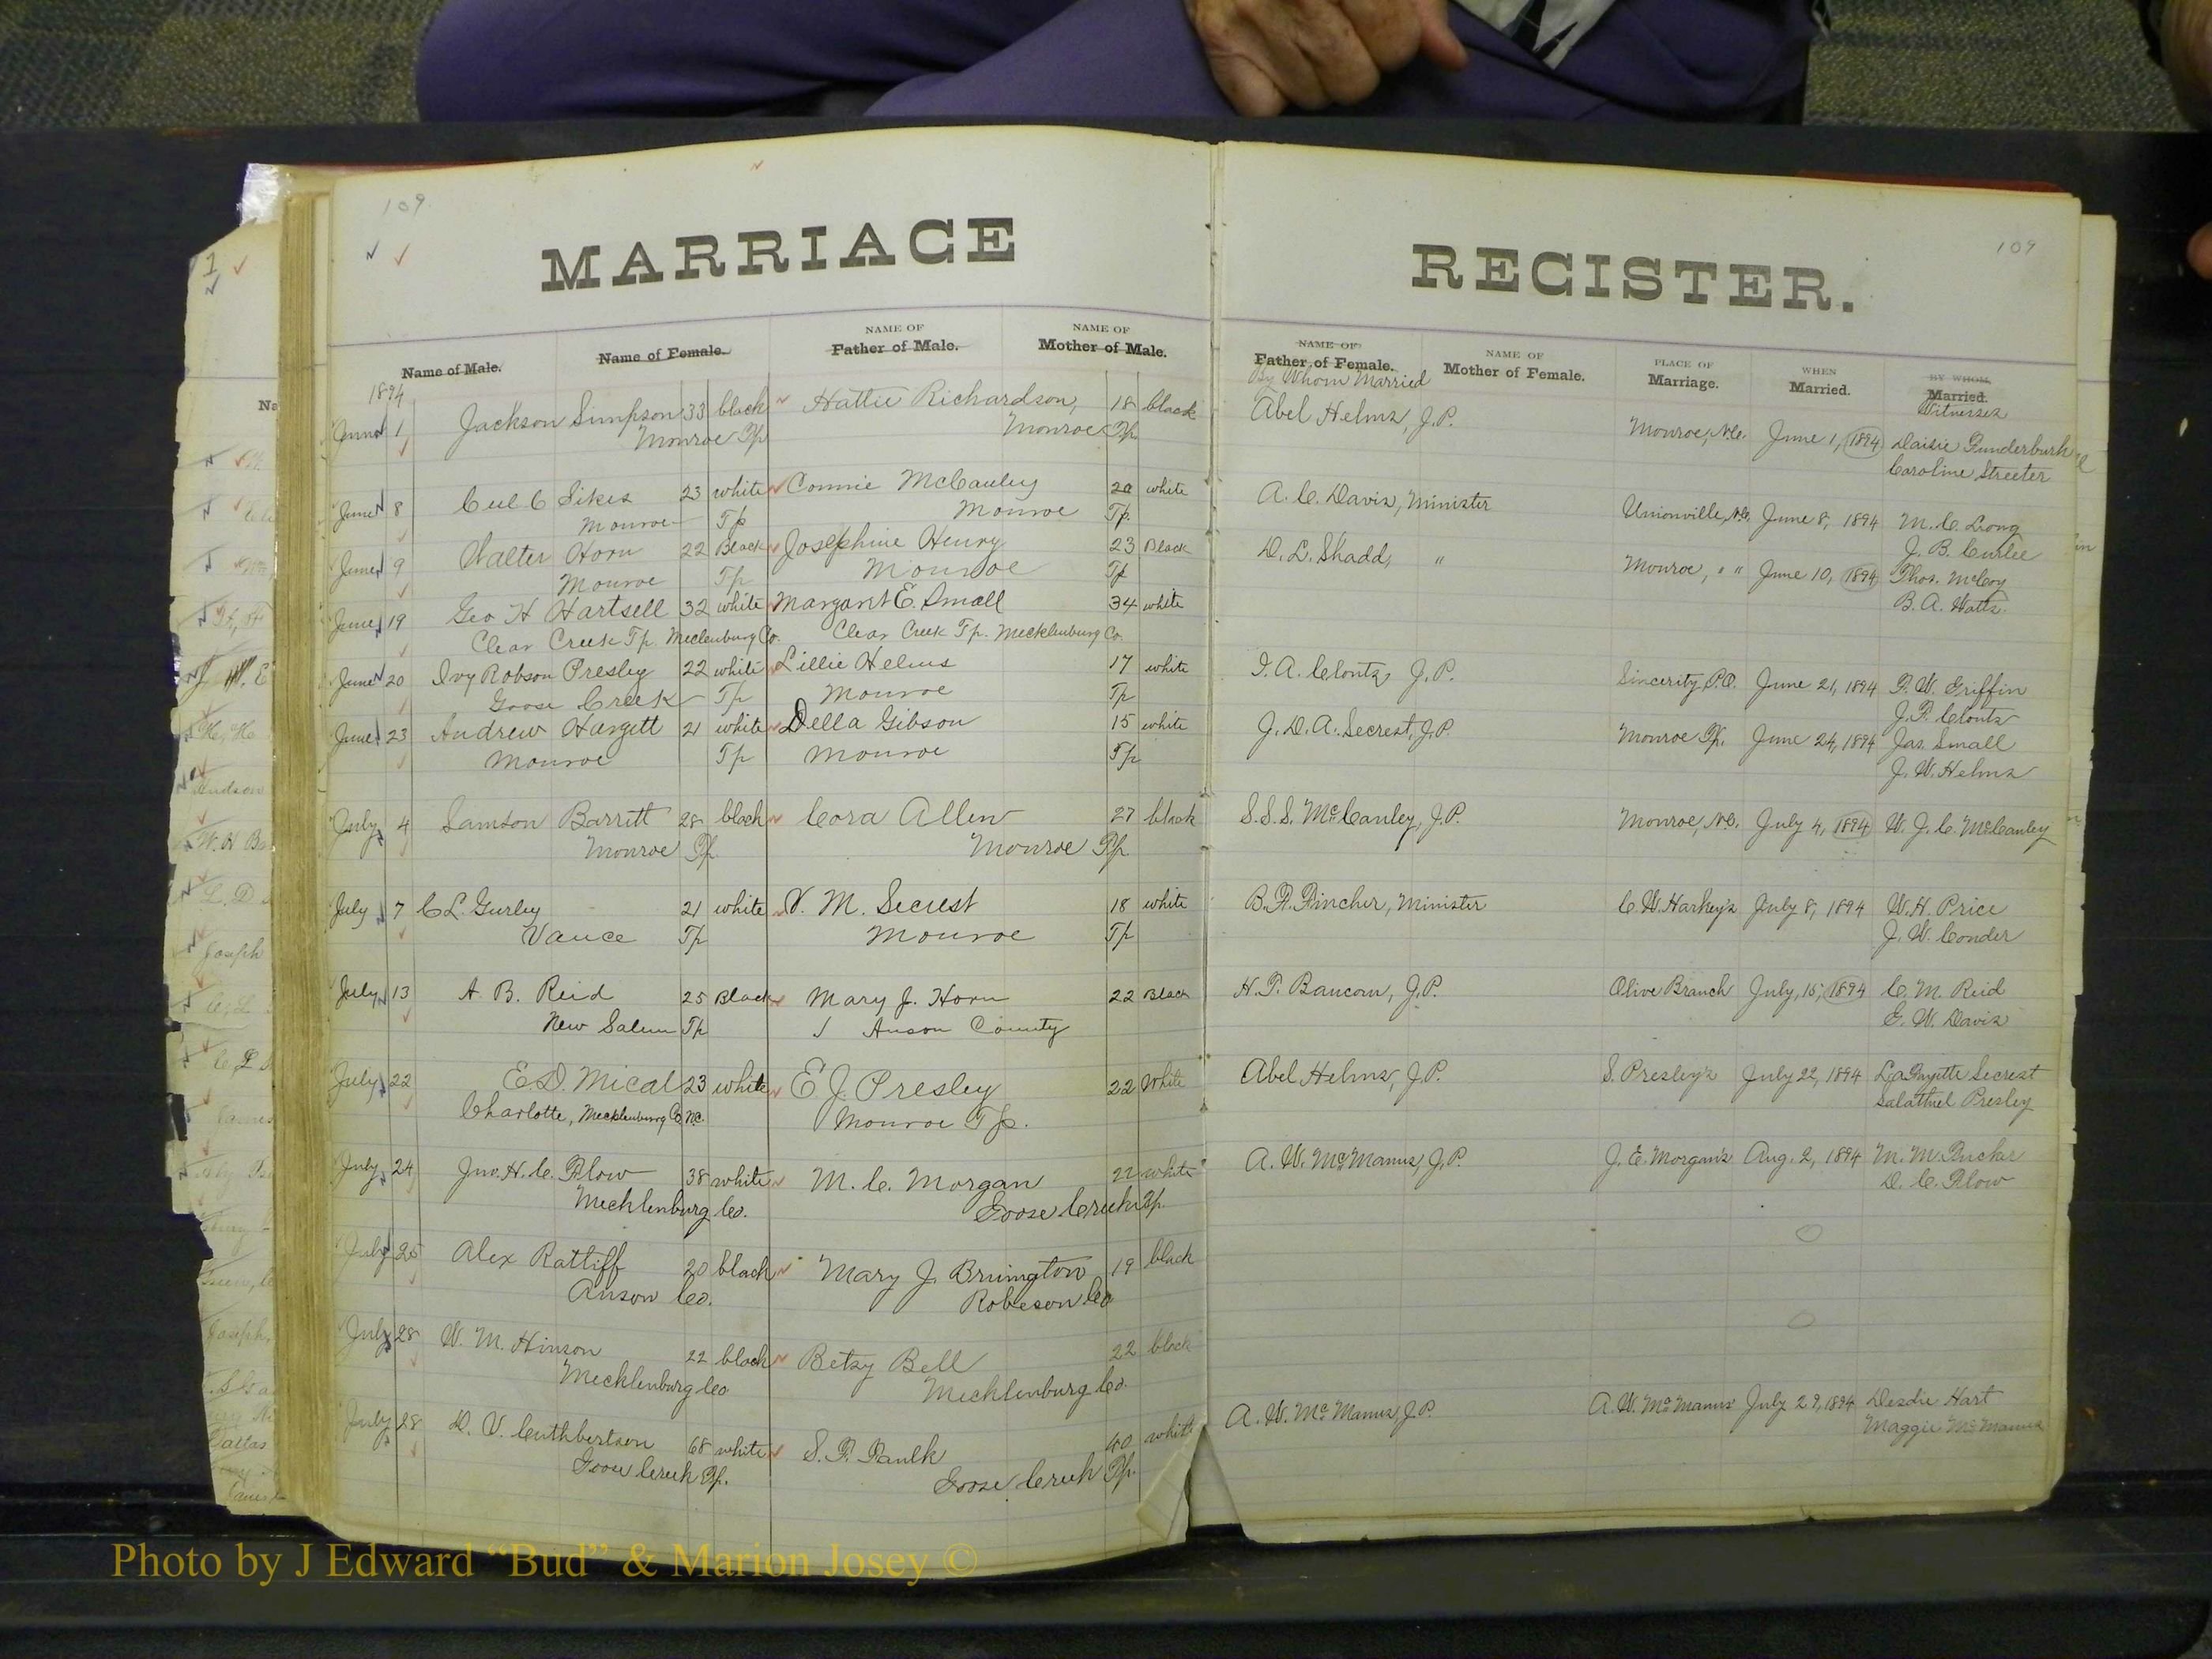 109
MARRIAGE
REGISTER.
109
Name of Male.
Name of Female.
NAME OF
Father of Male.
NAME OF
Mother of Male.
NAME OF
Father of Female.
By Whom Married
NAME OF
Mother of Female.
PLACE OF
Marriage.
WHEN
Married.
BY WHOM
Married.
Witnesses
1894
June 1 Jackson Simpson 33 black Hattie Richardson, 18 black Abel Helms, J.P. Monroe, N.C. June 1, 1894 Daisie Funderburk
Monroe Tp Monroe Tp. Caroline Streeter
June 8 Cul C Sikes 23 white Connie McCauley 20 white A. C. Davis, Minister Unionville, N.C. June 8, 1894 M. C. Long
Monroe Tp Monroe Tp. J. B. Curlee
June 9 Walter Horn 22 Black Josephine Henry 23 Black D. L. Shadd, " Monroe, " " June 10, 1894 Thos. McCoy
Monroe Tp Monroe Tp B. A. Watts
June 19 Geo H Hartsell 32 white Margaret E. Small 34 white
Clear Creek Tp. Meclenburg Co. Clear Creek Tp. Mecklenburg Co.
June 20 Ivy Robson Presley 22 white Lillie Helms 17 white I. A. Clontz, J.P. Sincerity P.O. June 21, 1894 P. W. Griffin
Goose Creek Tp Monroe Tp J. P. Clontz
June 23 Andrew Hargett 21 white Della Gibson 15 white J. D. A. Secrest, J.P. Monroe Tp. June 24, 1894 Jas. Small
Monroe Tp Monroe Tp J. W. Helms
July 4 Samson Barrett 28 black Cora Allen 27 black S.S.S. McCauley, J.P. Monroe, N.C. July 4, 1894 W. J. C. McCauley
Monroe Tp Monroe Tp.
July 7 C L. Gurley 21 white V. M. Secrest 18 white B. F. Fincher, Minister C. W. Harkey's July 8, 1894 W. H. Price
Vance Tp Monroe Tp J. W. Conder
July 13 A. B. Reid 25 Black Mary J. Horn 22 Black H. T. Baucom, J.P. Olive Branch July, 15, 1894 C. M. Reid
New Salem Tp Anson County E. W. Davis
July 22 E D. Mical 23 white E J. Presley 22 White Abel Helms, J.P. S. Presley's July 22, 1894 LaFayette Secrest
Charlotte, Mecklenburg Co N.C. Monroe Tp. Salathiel Presley
July 24 Jno. H. C. Plow 38 white M. C. Morgan 22 white A. W. McManus, J.P. J. E. Morgan's Aug. 2, 1894 M. M. Tucker
Mecklenburg Co. Goose Creek Tp. D. C. Plow
July 25 Alex Ratliff 20 black Mary J. Brington 19 black
Anson Co. Robeson Co
July 28 W. M. Hinson 22 black Betsy Bell 22 black
Mecklenburg Co Mecklenburg Co.
July 28 D. V. Cuthbertson 68 white S. F. Faulk 40 white A. W. McManus, J.P. A. W. McManus' July 29, 1894 Dezdie Hart
Goose Creek Tp. Goose Creek Tp. Maggie McManus
Photo by J Edward "Bud" & Marion Josey ©